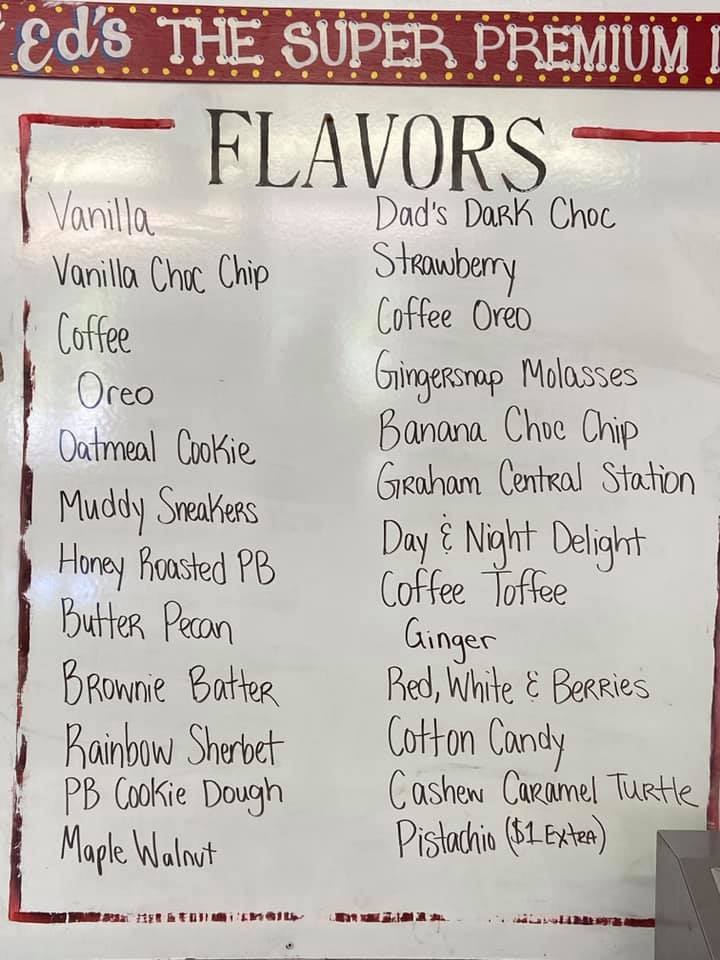 Ed's THE SUPER PREMIUM
FLAVORS
Vanilla
Vanilla Choc Chip
Coffee
Oreo
Oatmeal Cookie
Muddy Sneakers
Honey Roasted PB
Butter Pecan
Brownie Batter
Rainbow Sherbet
PB Cookie Dough
Maple Walnut
Dad's Dark Choc
Strawberry
Coffee Oreo
Gingersnap Molasses
Banana Choc Chip
Graham Central Station
Day & Night Delight
Coffee Toffee
Ginger
Red, White & Berries
Cotton Candy
Cashew Caramel Turtle
Pistachio ($1 Extra)